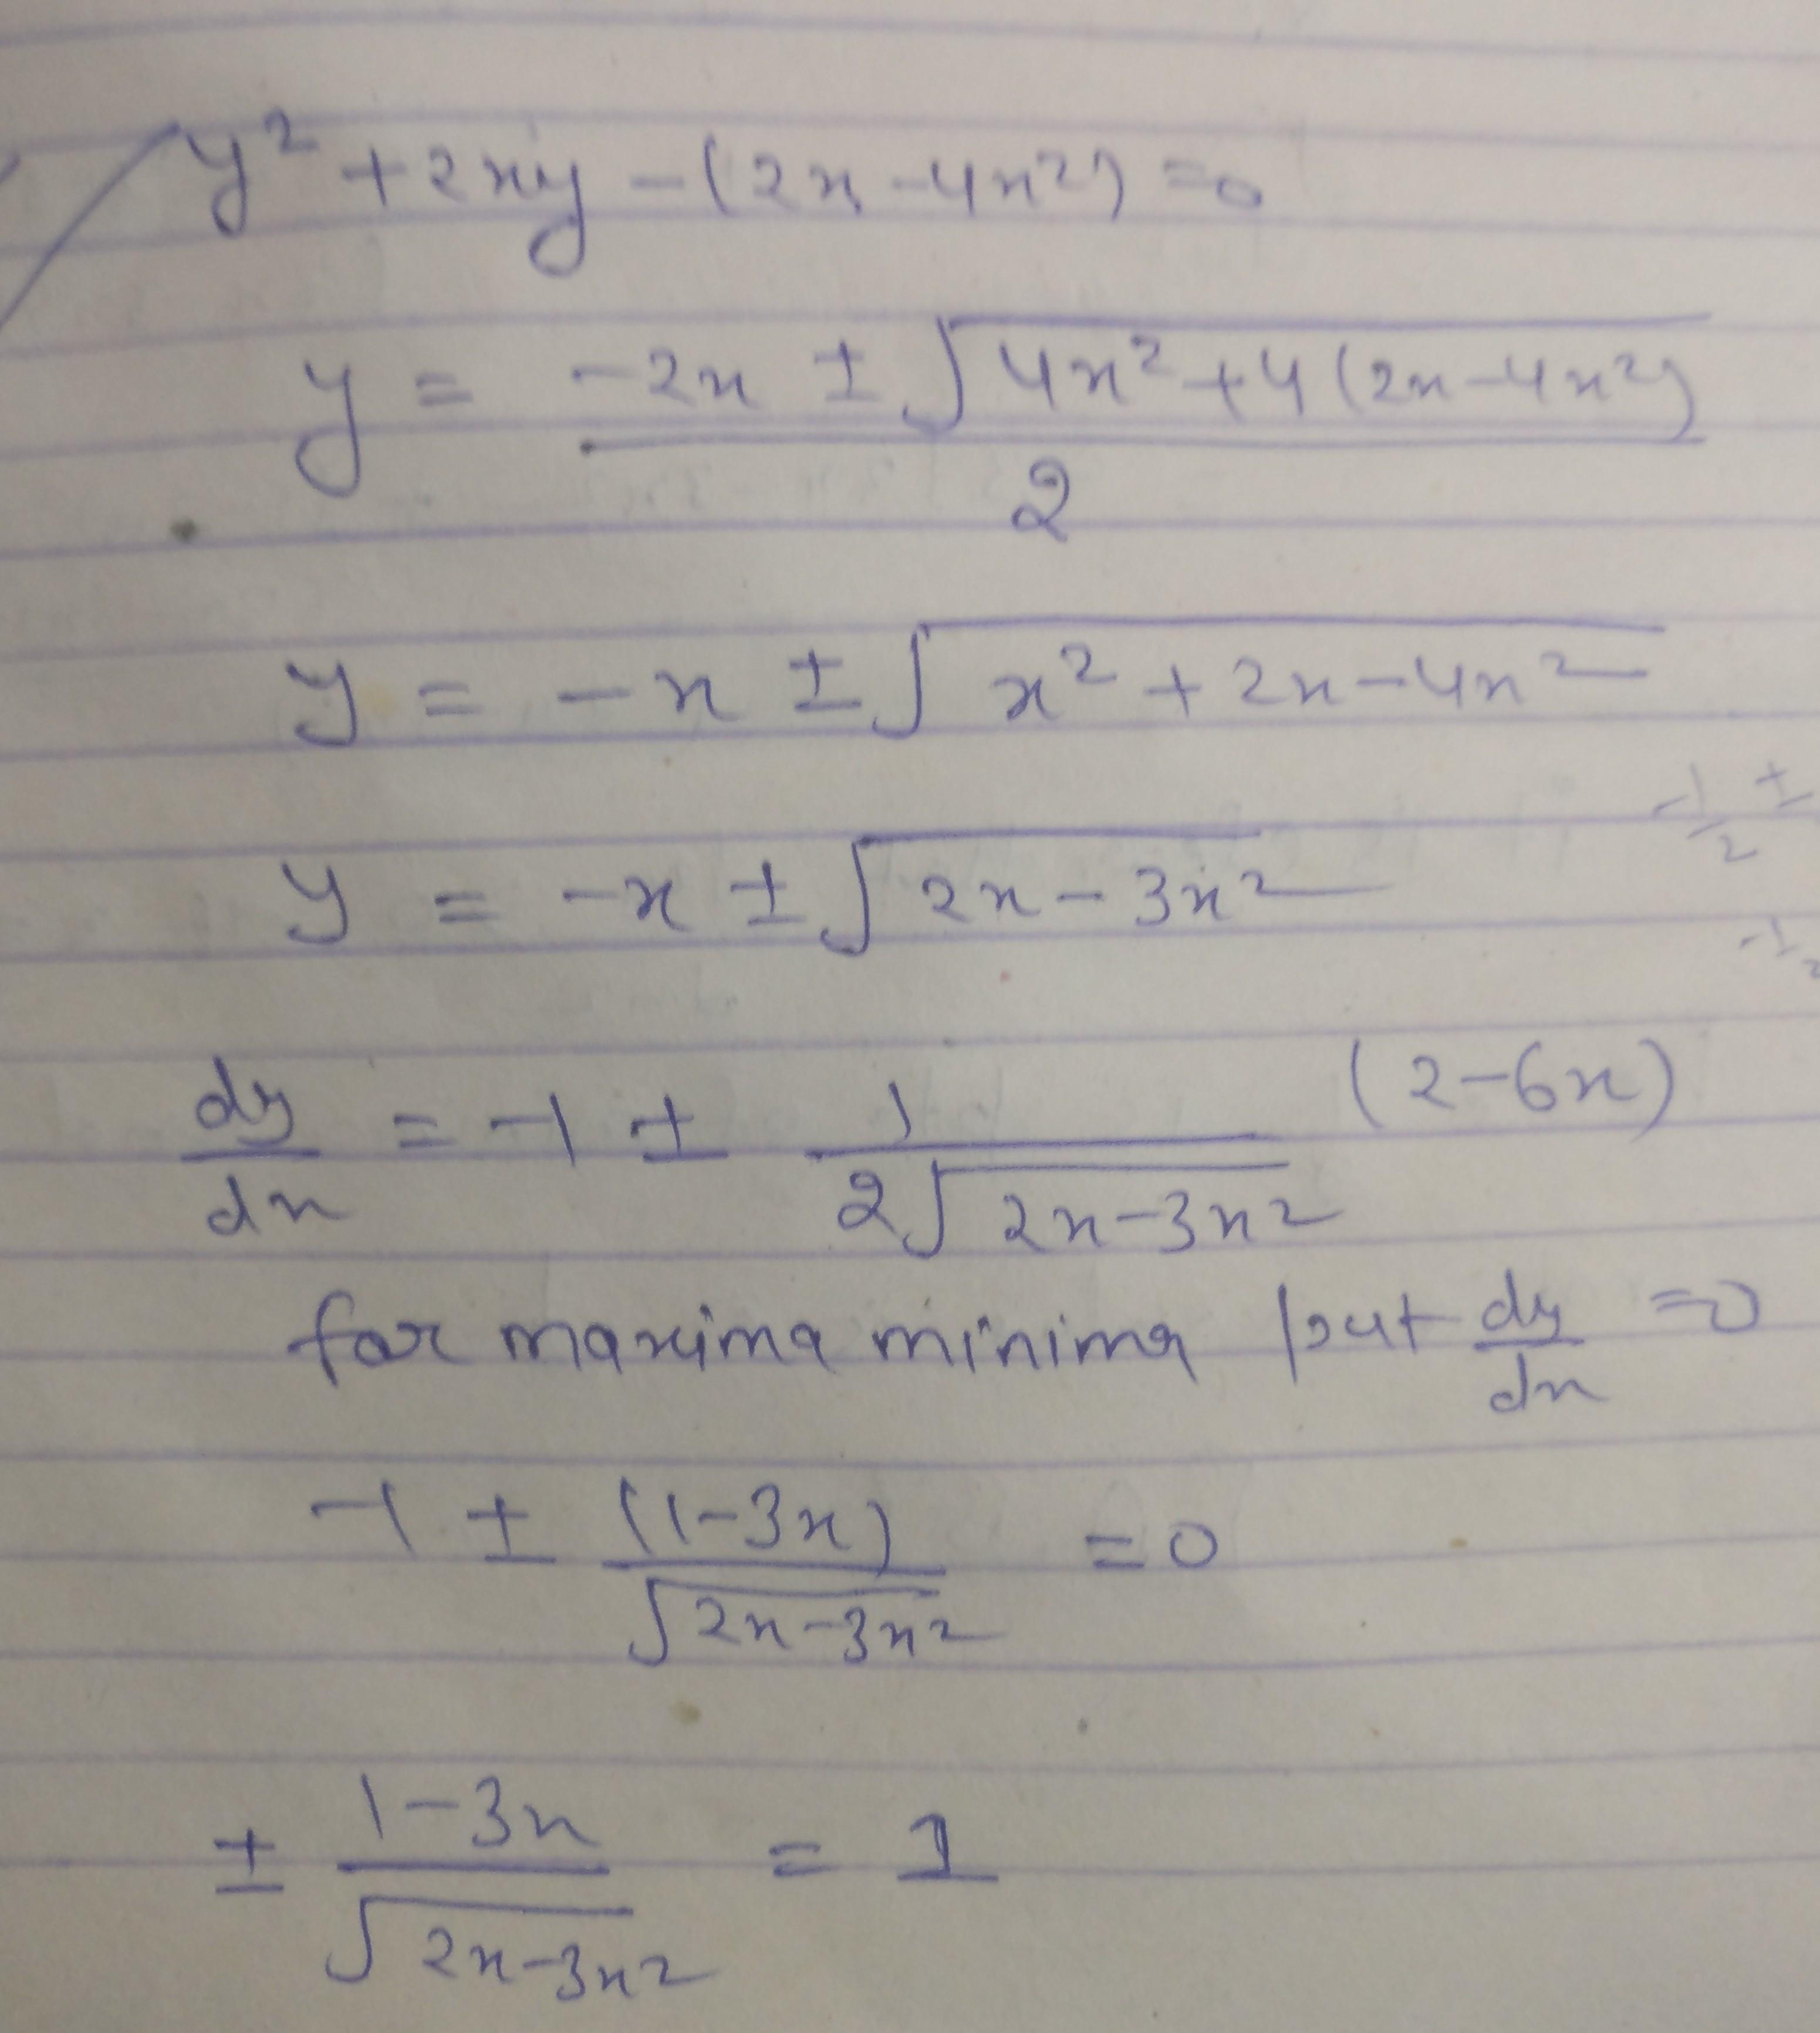 y² + 2xy - (2x - 4x²) = 0
y = (-2x ± √(4x² + 4(2x - 4x²))) / 2
y = -x ± √(x² + 2x - 4x²)
y = -x ± √(2x - 3x²)
dy/dx = -1 ± 1/(2√(2x - 3x²)) (2 - 6x)
for maxima minima put dy/dx = 0
-1 ± (1 - 3x)/√(2x - 3x²) = 0
± (1 - 3x)/√(2x - 3x²) = 1